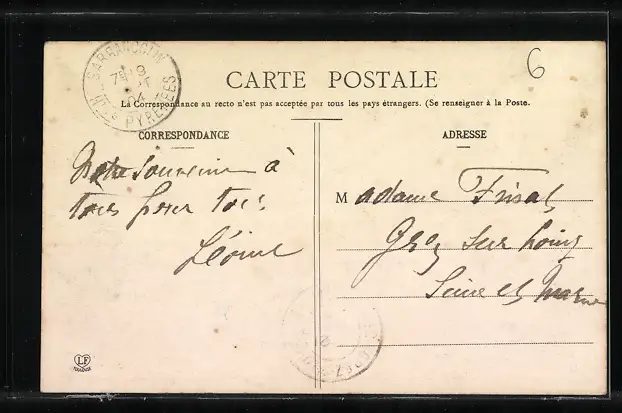 6
SARRANCOLIN
7E 8
04
HTES PYRENEES
CARTE POSTALE
La Correspondance au recto n'est pas acceptée par tous les pays étrangers. (Se renseigner à la Poste.
CORRESPONDANCE
ADRESSE
Notre souvenir à
tous pour toi.
Léonie
Madame Frisat
Grez sur Loing
Seine et Marne
LF
TOULOUSE